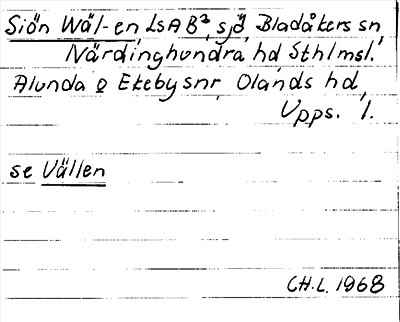 Siön Wäl-en LsA B², sjö, Bladåkers sn,
Närdinghundra hd, Sthlms l.
Alunda o Ekeby snr, Olands hd,
Upps. l.
se Vällen
CH.L. 1968